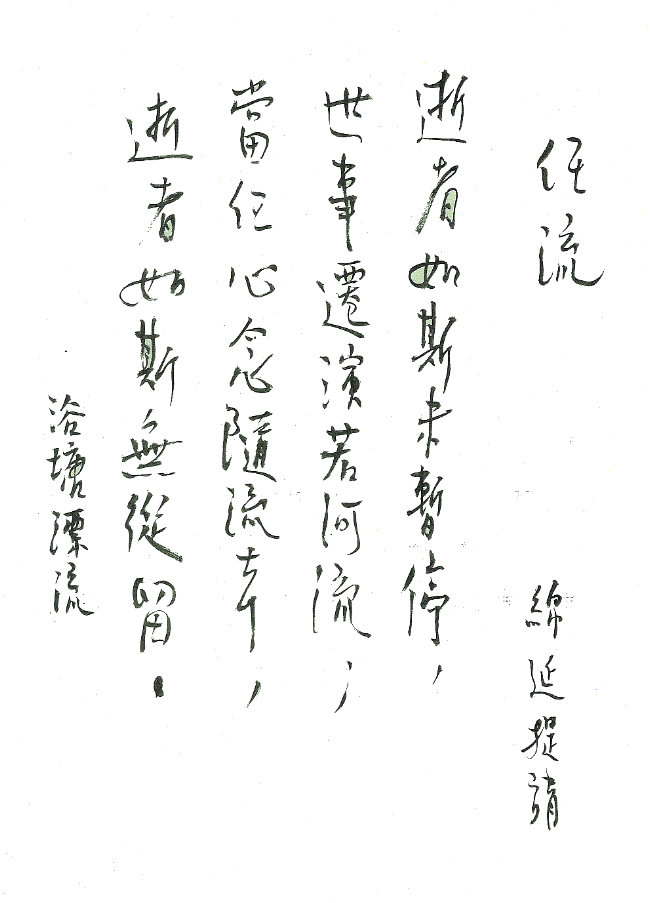 任流
綿延提請
逝者如斯未暫停，
世事遷演若河流；
當任心念隨流，
逝者如斯無從留。
浴塘漂流